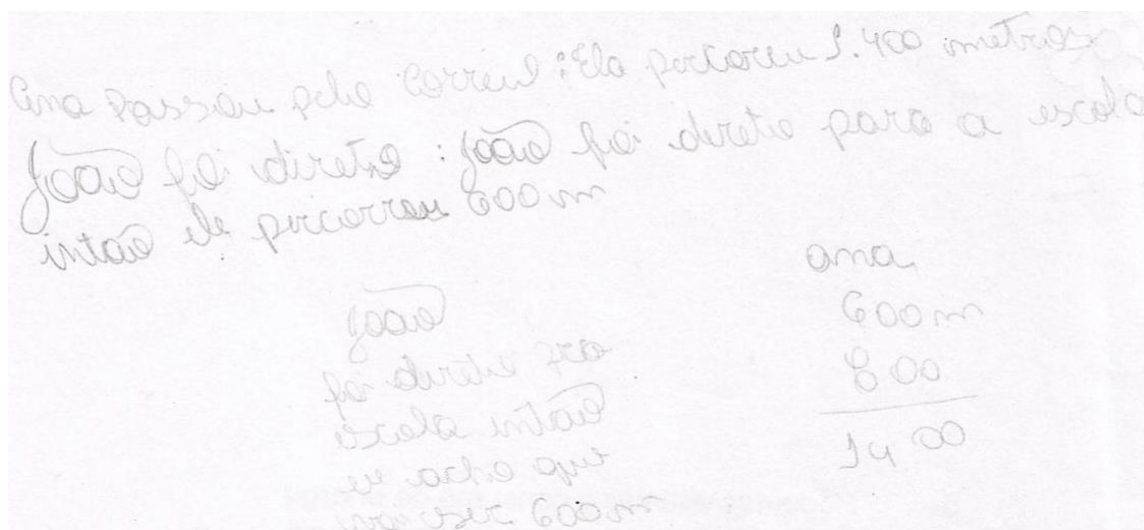 Ana Passou pelo Correil : Ela percoreu 1.400 metros
João foi direto : João foi direto para a escola
intão ele percorreu 600 m
João
foi direto pra
escola intão
eu acho que
vai ser 600 m
ana
600 m
800
1400